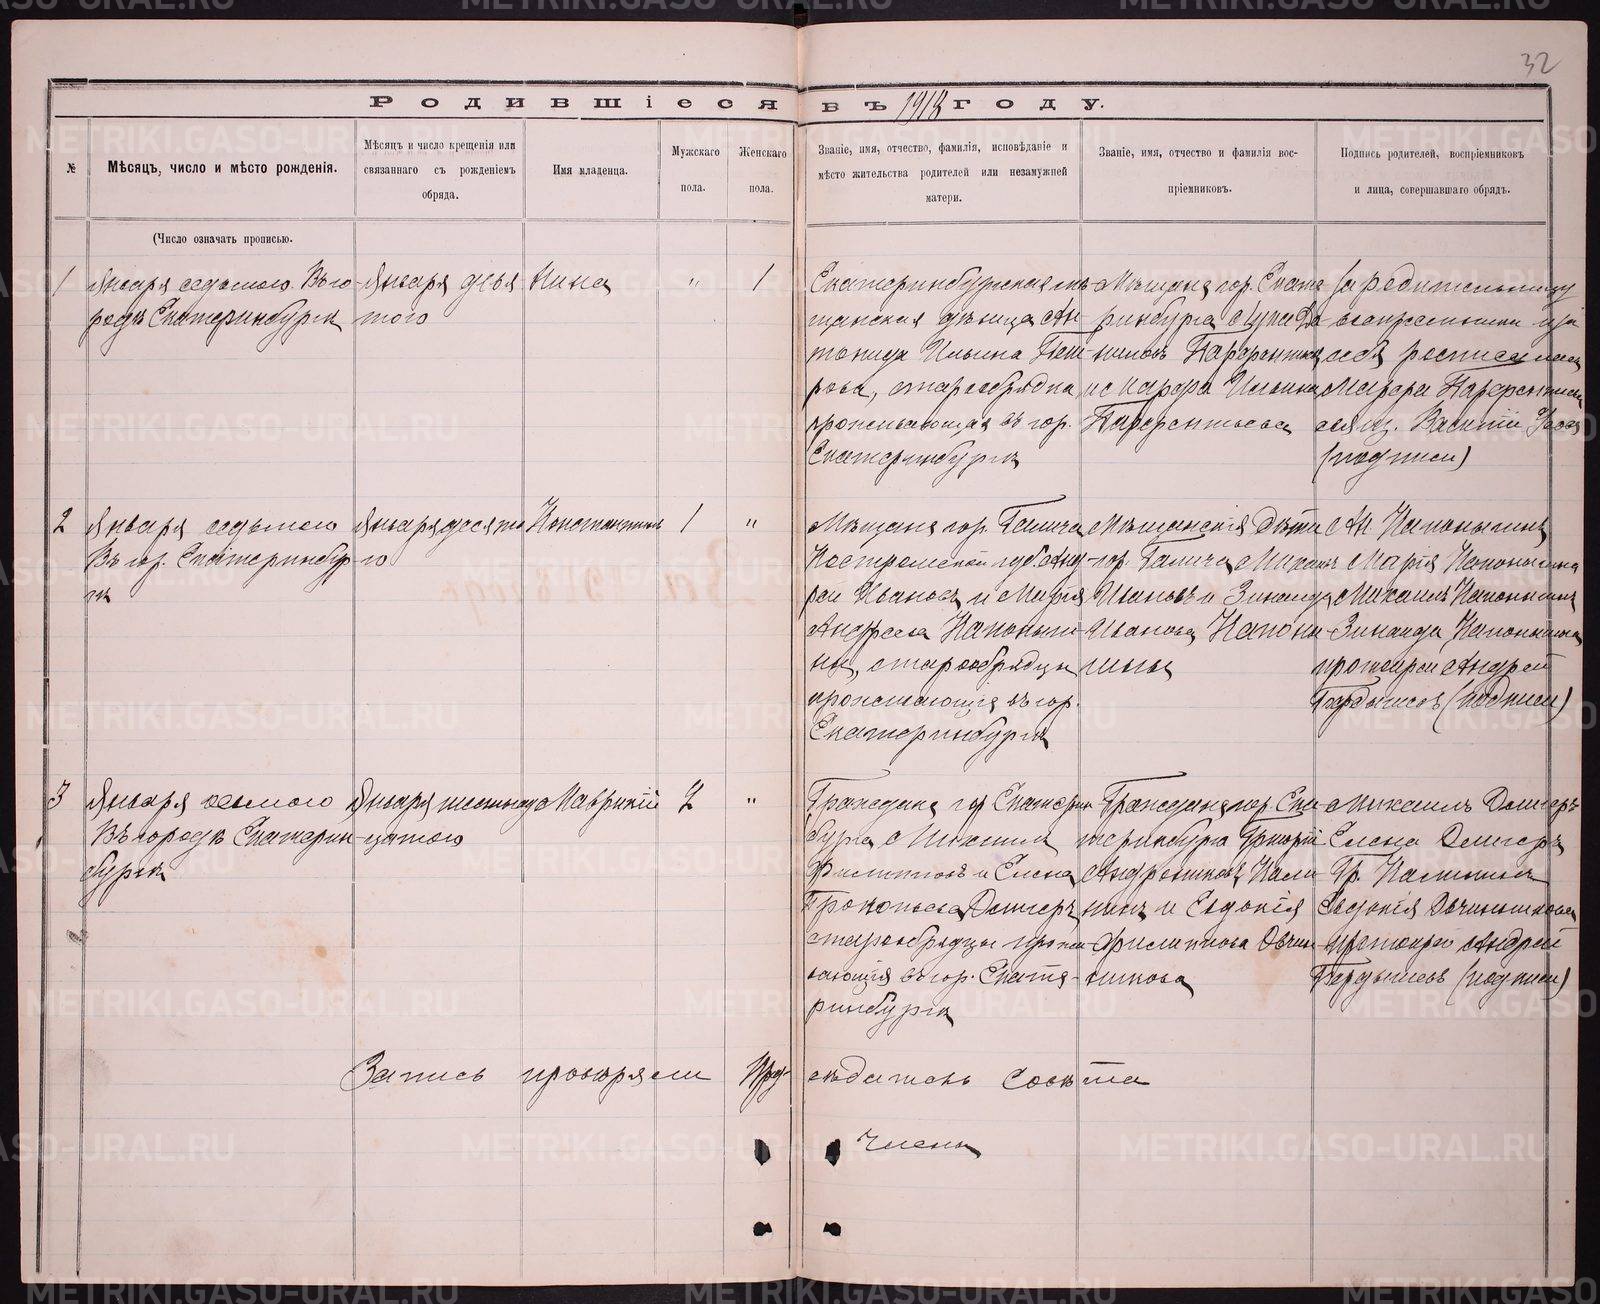 32
Родившіеся въ 1918 году.
№
Мѣсяцъ, число и мѣсто рожденія.
Мѣсяцъ и число крещенія или
связаннаго съ рожденіемъ
обряда.
Имя младенца.
Мужскаго
пола.
Женскаго
пола.
Званіе, имя, отчество, фамилія, исповѣданіе и
мѣсто жительства родителей или незамужней
матери.
Званіе, имя, отчество и фамилія вос-
пріемниковъ.
Подпись родителей, воспріемниковъ
и лица, совершавшаго обрядъ.
(Число означать прописью.
1
Января седьмого Въ го-
родѣ Екатеринбургѣ
Января девя
того
Нина
"
1
Екатеринбургская мѣ-
щанская дѣвица Ан
тонида Ильина
рова, старообрядка
проживающая въ гор.
Екатеринбургѣ
Мѣщане гор. Екате
ринбурга Лука Да
ниловъ Парфентьев
и Марфа Ильина
Парфентьева
За родительницу
воспріемника и за
себя росписалась
Марфа Парфентьева
свящ. Василій
(подписи)
2
Января седьмого
Въ гор. Екатеринбур-
гѣ
Января десято
го
Константинъ
1
"
Мѣщане гор. Галича
Костромской губ. Анд-
рей Ивановъ и Марія
Андреева Капоныги-
ны, старообрядцы
проживающіе въ гор.
Екатеринбургѣ
Мѣщанскія дѣти
гор. Галича Михаилъ
Ивановъ и Зинаида
Иванова Капоны
гины
Ан Капоныгинъ
Марія Капоныгина
Михаилъ Капоныгинъ
Зинаида Капоныгина
протоіерей Андрей
Бердышевъ (подписи)
3
Января осьмого
Въ городѣ Екатерин-
бургѣ
Января шестнад
цатого
Маврикій
2
"
Граждане гор Екатерин
бурга Михаилъ
Филипповъ и Елена
Прокопьева
старообрядцы прожи
вающіе въ гор. Екате-
ринбургѣ
Граждане гор. Ека-
теринбурга Григорій
Андрониковъ Кали
нинъ и Евдокія
Филиппова Овчин-
никова
Михаилъ
Елена
Гр. Калининъ
Евдокія Овчинникова
протоіерей Андрей
Бердышевъ (подписи)
Запись провѣряли Предсѣдатель Совѣта
Члены
METRIKI.GASO-URAL.RU